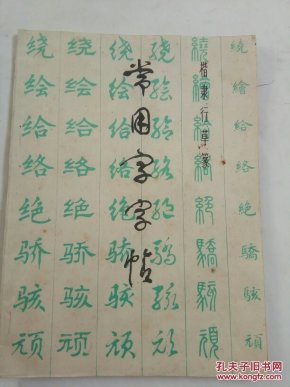 常用字字帖
楷隶行草篆
绕 绕 绕 绕 繞 繞
绘 绘 绘 绘 繪 繪
给 给 给 给 給 給
络 络 络 络 絡 絡
绝 绝 绝 绝 絕 絶
骄 骄 骄 骄 驕 驕
骇 骇 骇 骇 駭 駭
顽 顽 顽 顽 頑 頑
孔夫子旧书网